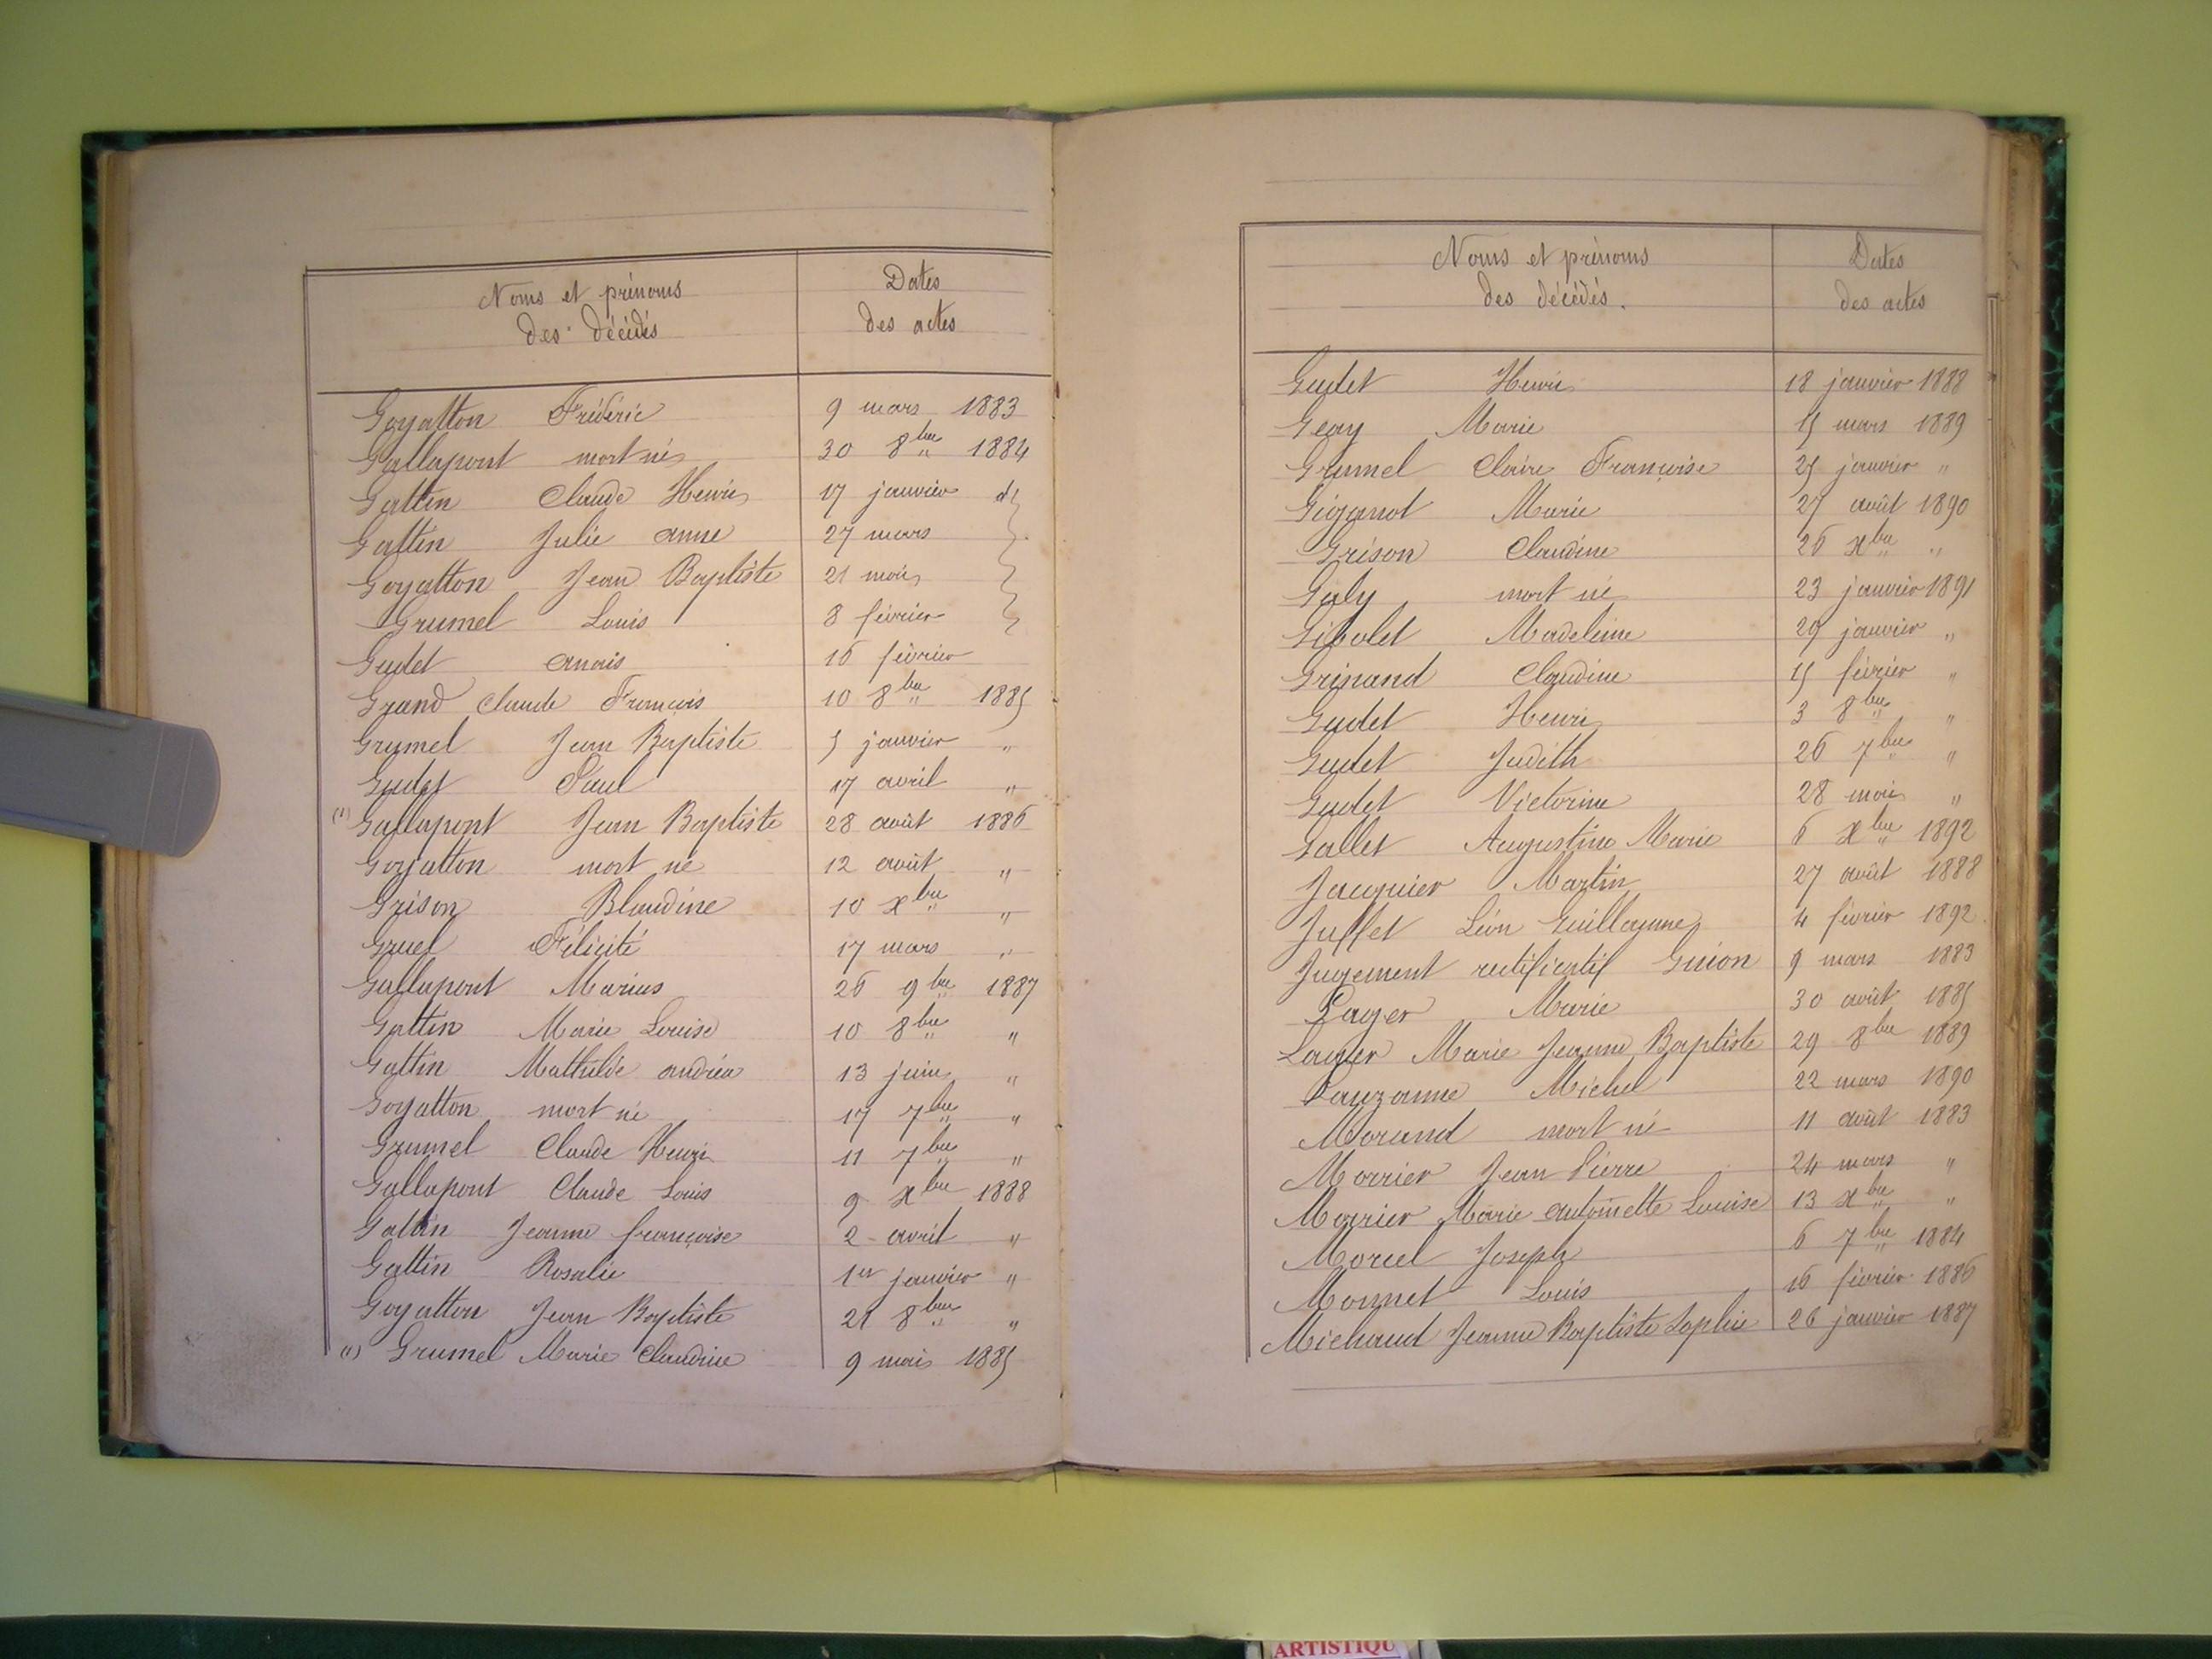 Noms et prénoms
des décédés
Dates
des actes
Goyatton Frédéric 9 mars 1883
Gallapont mort né 30 8bre 1884
Gattin Claude Henri 17 janvier d
Gattin Julie Anne 27 mars
Goyatton Jean Baptiste 21 mai
Grumel Louis 8 février
Gudet Anaïs 16 février
Grand Claude François 10 8bre 1885
Grumel Jean Baptiste 5 janvier "
Gudet Paul 17 avril "
(1) Gallapont Jean Baptiste 28 août 1886
Goyatton mort né 12 août "
Grison Blandine 10 xbre "
Gruel Félicité 17 mars "
Gallapont Marius 26 9bre 1887
Gattin Marie Louise 10 8bre "
Gattin Mathilde Andréa 13 juin "
Goyatton mort né 17 7bre "
Grumel Claude Henri 11 7bre "
Gallapont Claude Louis 9 xbre 1888
Gattin Jeanne françoise 2 avril "
Gattin Rosalie 1er janvier "
Goyatton Jean Baptiste 21 8bre "
(1) Grumel Marie Claudine 9 mai 1885
Noms et prénoms
des décédés.
Dates
des actes
Gudet Henri 18 janvier 1888
Geay Marie 15 mars 1889
Grumel Claire Françoise 25 janvier "
Gigarnot Marie 27 août 1890
Grison Claudine 26 xbre "
Galy mort né 23 janvier 1891
Gibolet Madeleine 29 janvier "
Grinand Claudine 15 février "
Gudet Henri 3 8bre "
Gudet Judith 26 7bre "
Gudet Victorine 28 mai "
Gallet Augustine Marie 6 xbre 1892
Jacquier Martin 27 août 1888
Juffet Léon Guillaume 4 février 1892
Jugement rectificatif Guion 9 mars 1883
Lager Marie 30 août 1885
Lager Marie Jeanne Baptiste 29 8bre 1889
Lauzanne Michel 22 mars 1890
Morand mort né 11 août 1883
Morrier Jean Pierre 24 mars "
Morrier Marie Antoinette Louise 13 xbre "
Morel Joseph 6 7bre 1884
Monnet Louis 16 février 1886
Michaud Jeanne Baptiste Sophie 26 janvier 1887
ARTISTIQU